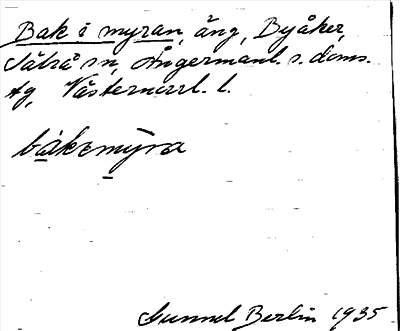 Bak i myran, äng, Byåker,
Såbrå sn, Ångermanl. s. doms.
tg, Västernorrl. l.
bákemýra
Gunnel Berlin 1935